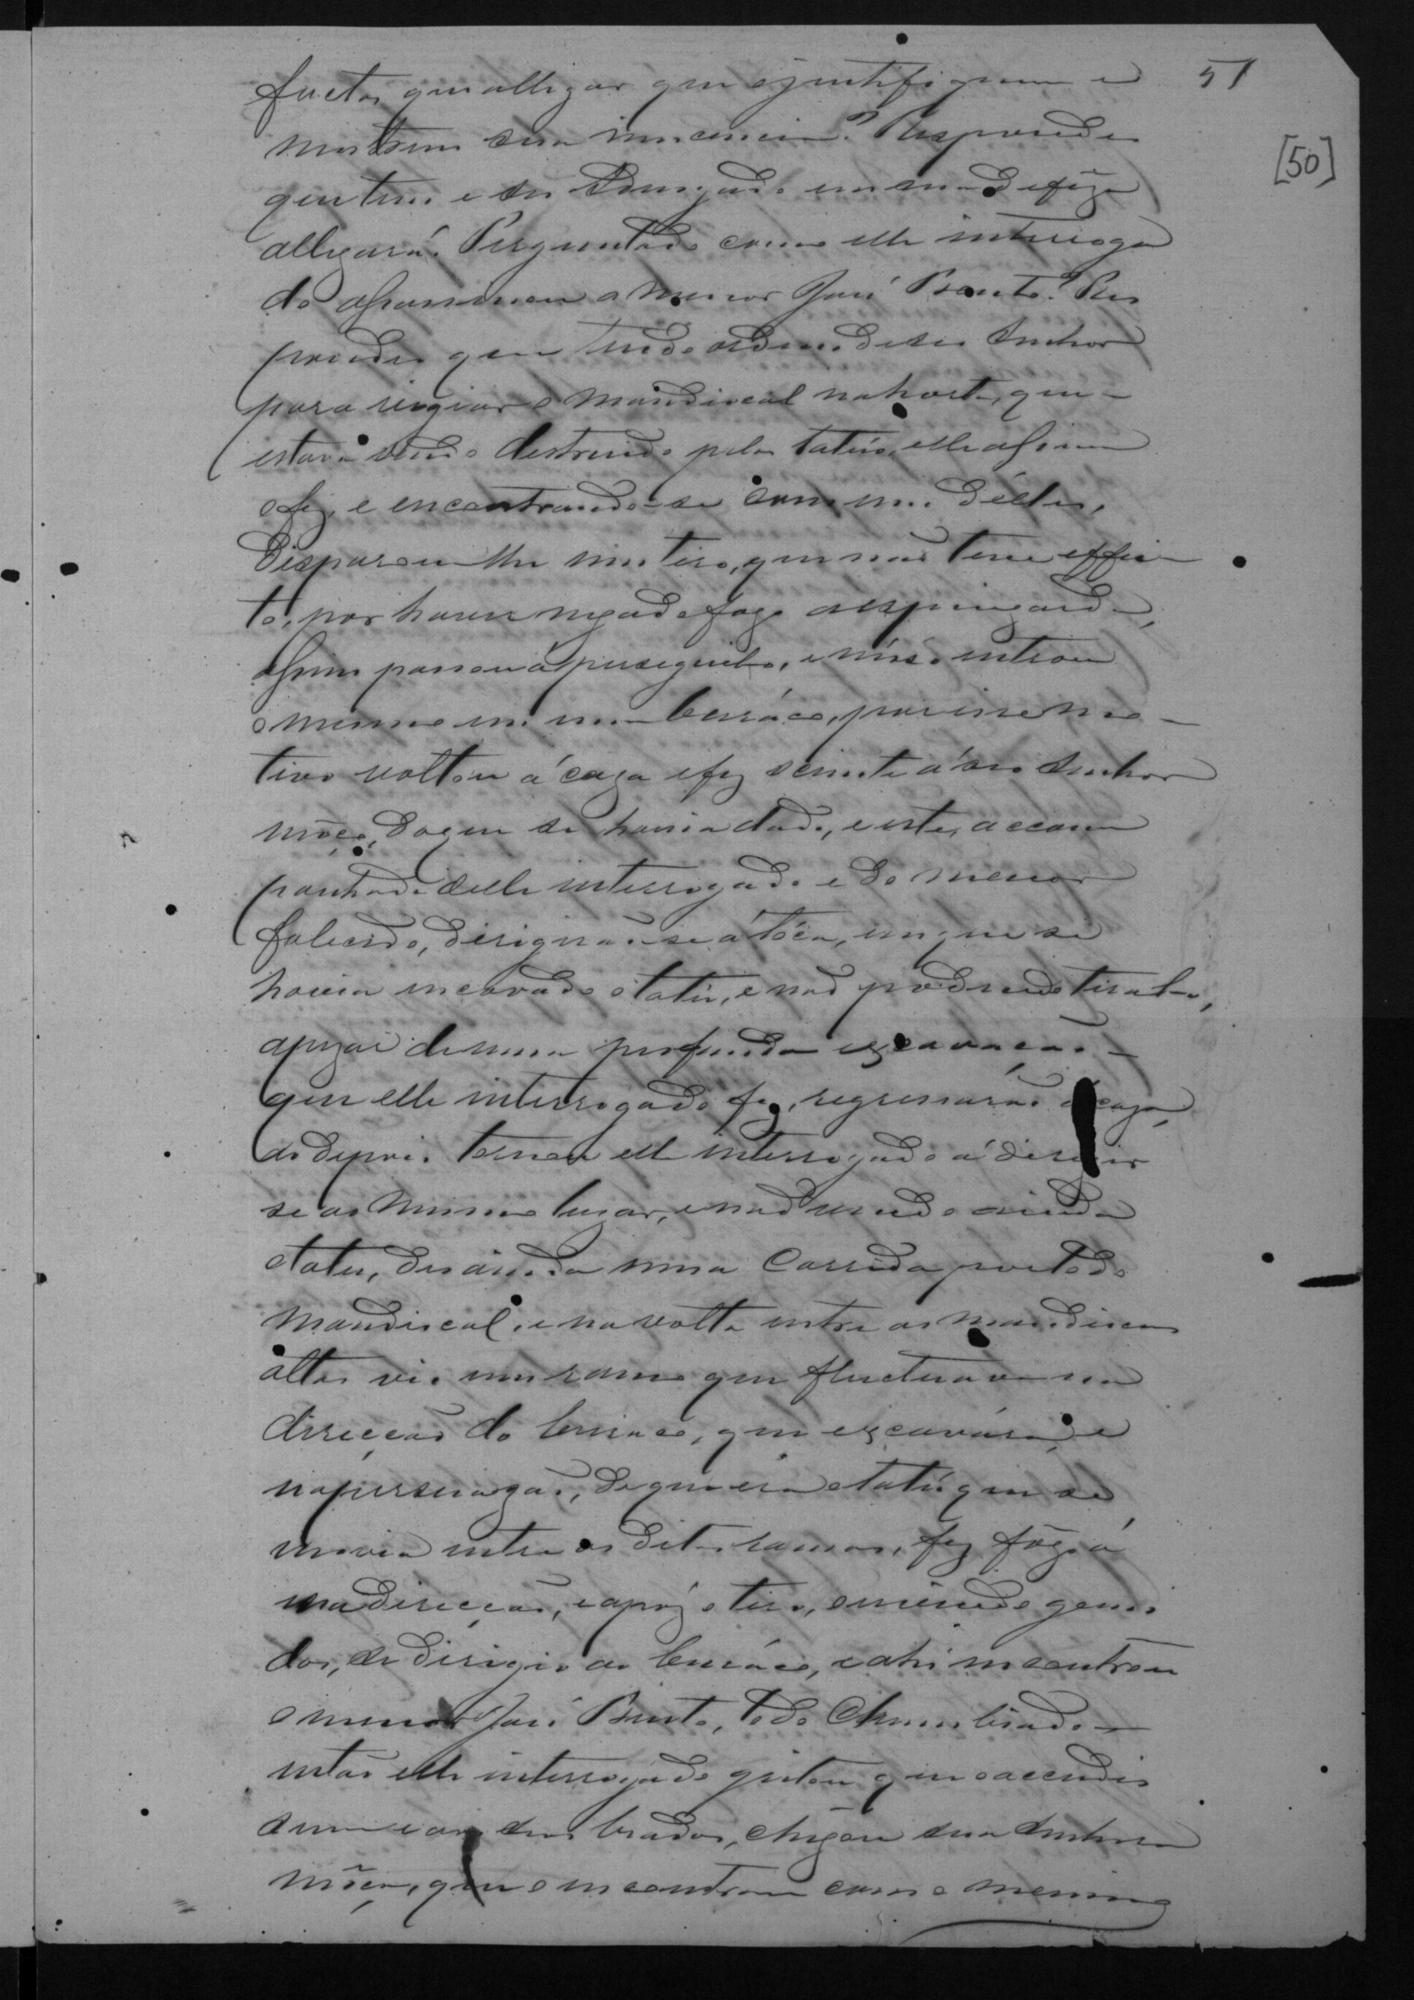 51
[50]
factos que allegar que o justifiquem e
mostrem sua innocencia? Respondeo
que tem e seu Advogado em sua defêza
allegará. Perguntado como elle interroga
do assassinou o menor José Bento? Res
pondeo que tendo ordem de seu Senhor
para vigiar o mandiocal na horta, que
estava sendo destruido pelos tatús, elle assim
o fez, e encontrando-se com um d'elles,
disparou-lhe um tiro, que não teve effei
to, por haver negado fogo a espingarda,
assim passou á perseguil-o, e n'isso entrou
o mesmo em um buráco, por esse mo
tivo voltou á caza e fez sciente á seo Senhor
môço, do que se havia dado, e este, accom
panhado delle interrogado e do menor
falecido, dirigirão-se á tóca, em que se
havia encovado o tatú, e não podendo tiral-o,
apezar de uma profunda excavação
que elle interrogado fez, regressarão á caza,
ao depois tornou elle interrogado á dirigir
se ao mesmo lugar, e não vendo ainda
o tatú, deo ainda uma corrida por todo
mandiocal, e na volta entre as mandiocas
altas vio uns ramos que fluctuavam na
direcção do buraco, que excavára, e
na persuazão, de que era o tatú que se
movia entre os ditos ramos, fez fôgo á
essa direcção, e apóz o tiro, ouvindo gemi
dos, se dirigio ao buráco, e ahi encontrou
o menor José Bento, todo chumbiado
então elle interrogado gritou que o accudis
sem e aos seus brados, chegou sua Senhora
môça, que o encontrou com o menino